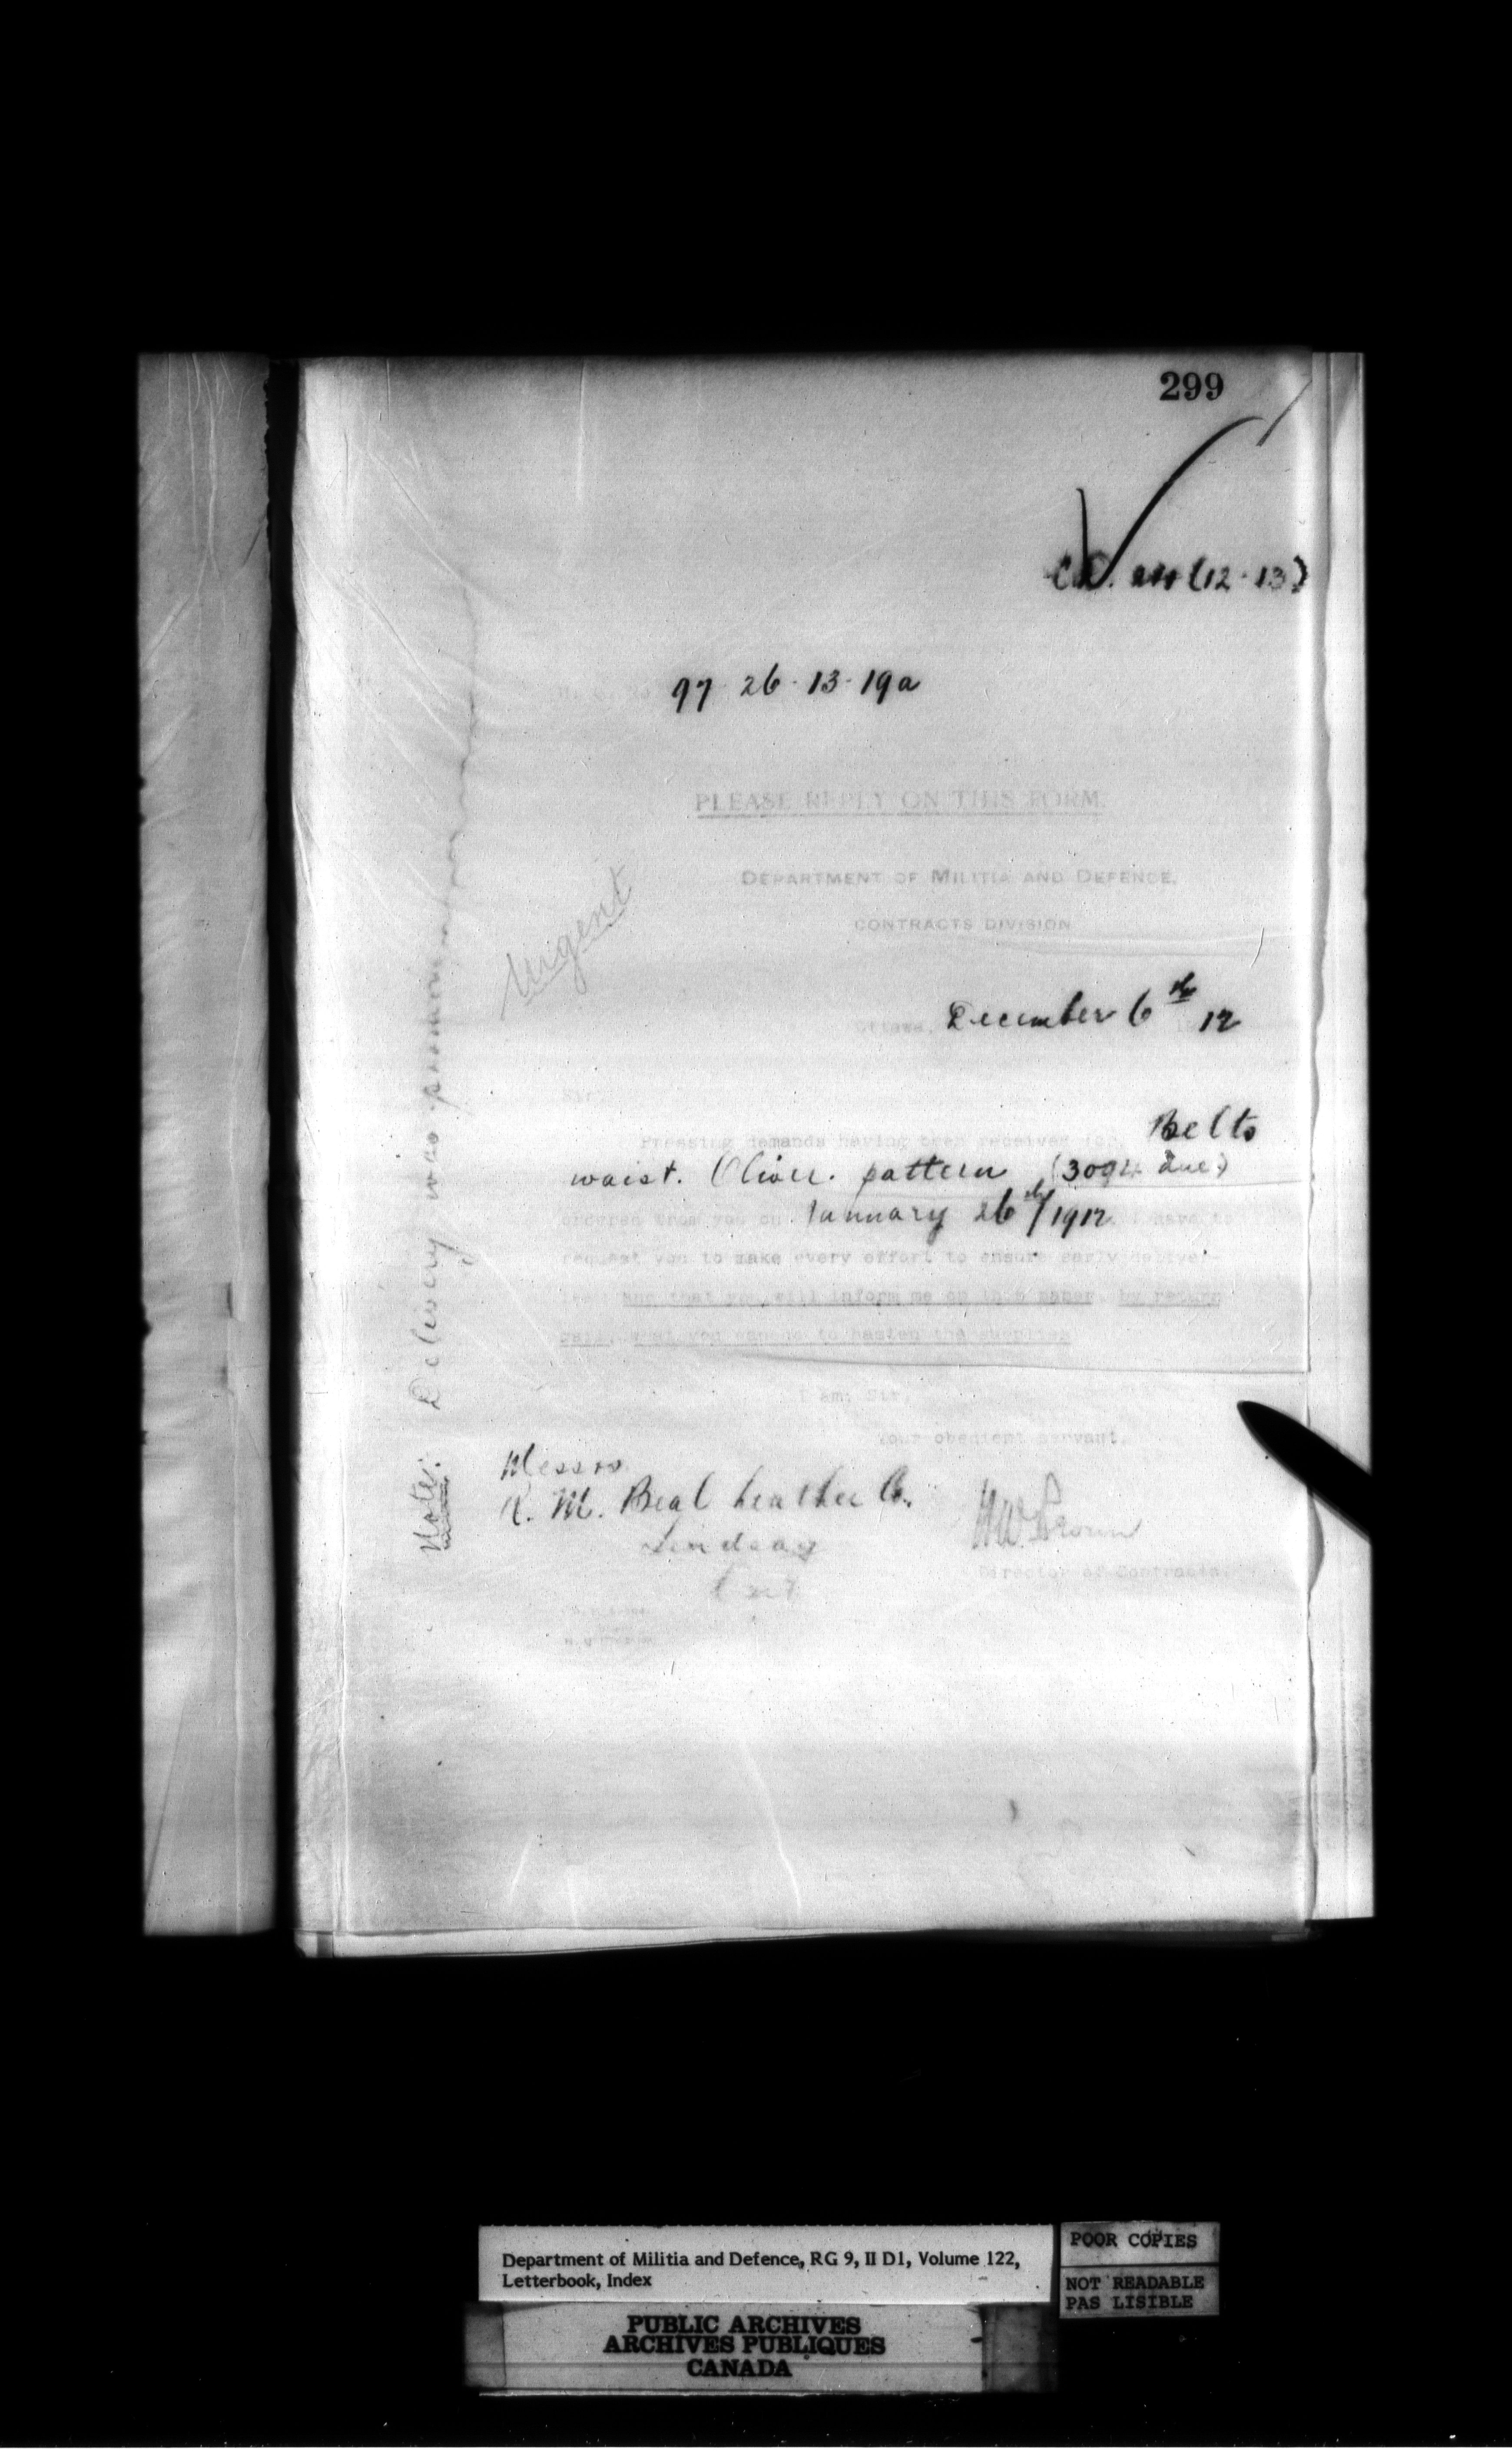 299
(12-13)
97 26-13-19a
PLEASE REPLY ON THIS FORM.
DEPARTMENT OF MILITIA AND DEFENCE,
CONTRACTS DIVISION
Urgent
Ottawa, December 6th 12
Sir,
Pressing demands having been received for Belts
waist. Oliver. pattern (3094 due)
ordered from you on January 26th/1912 I have to
request you to make every effort to ensure early deliver-
and that you will inform me on this paper, by return
mail, what you can do to hasten the supplies
I am, Sir,
Your obedient servant,
Messrs
R. M. Beal Leather Co.
Lindsay
Ont
HW Brown
Director of Contracts.
Note: Delivery was
Department of Militia and Defence, RG 9, II D1, Volume 122,
Letterbook, Index
POOR COPIES
NOT READABLE
PAS LISIBLE
PUBLIC ARCHIVES
ARCHIVES PUBLIQUES
CANADA